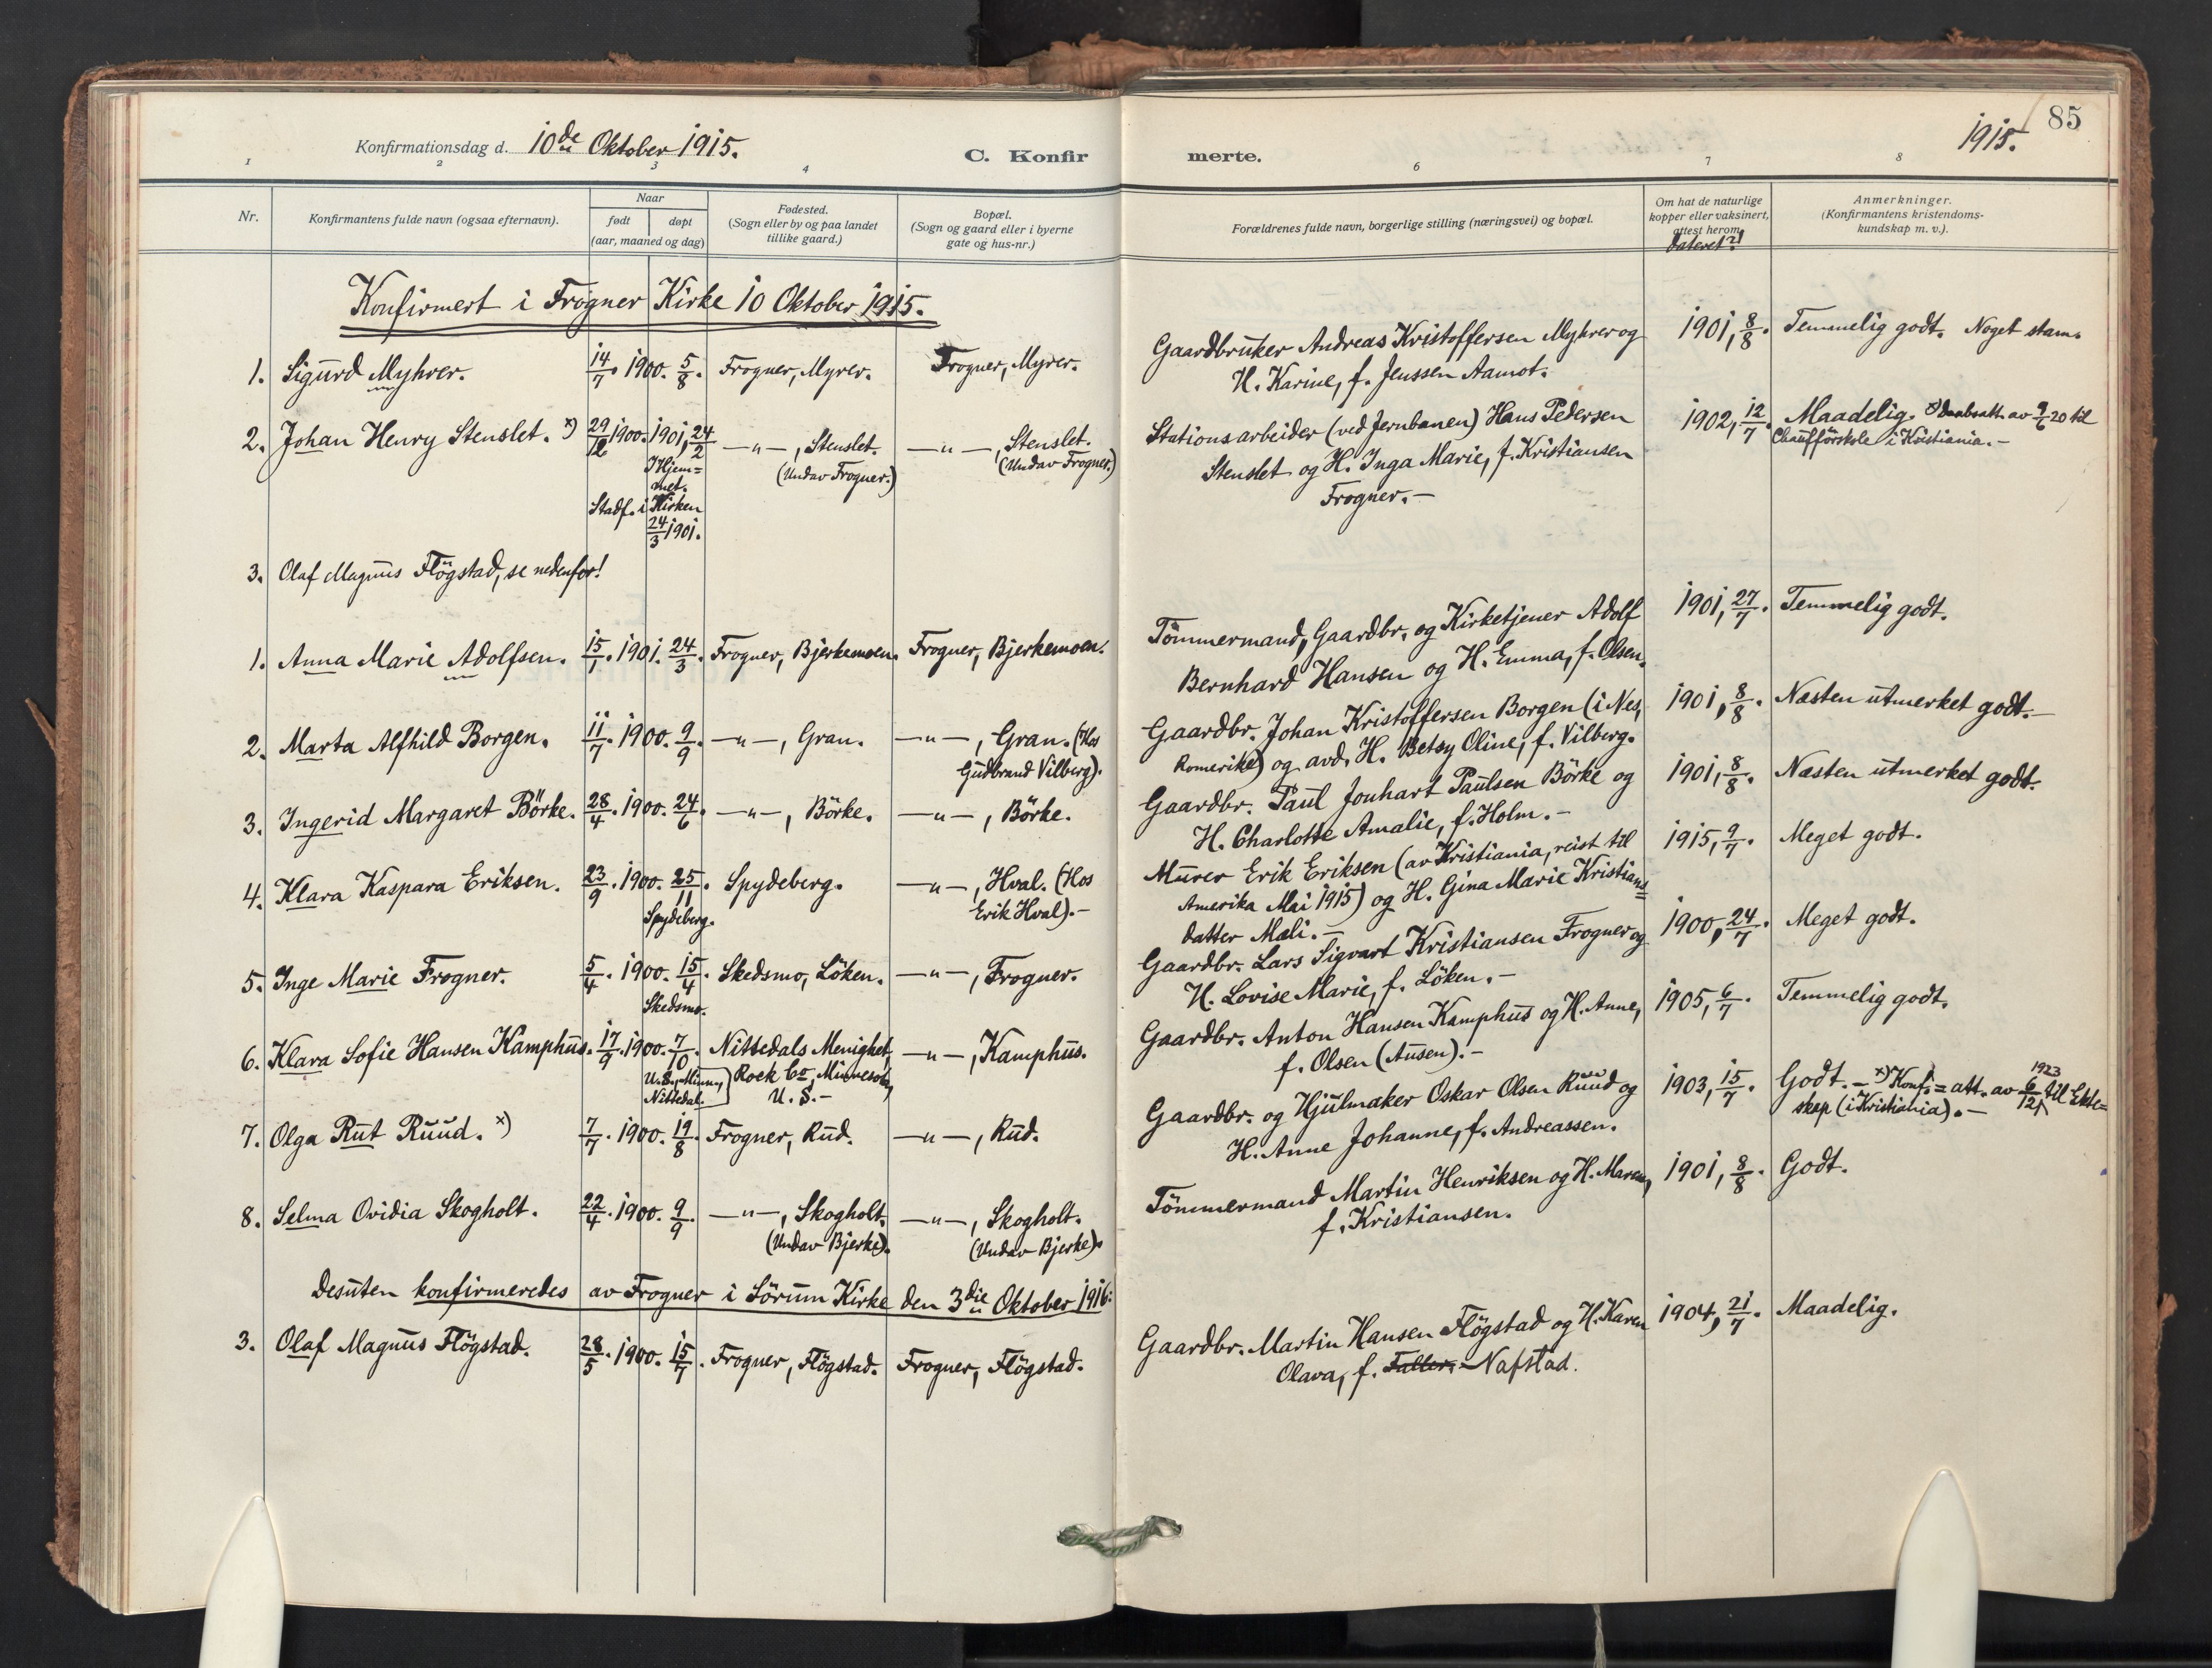 85
1915.
Konfirmationsdag d. 10de Oktober 1915.
C. Konfirmerte.
1 2 3 4 6 7 8
Nr.
Konfirmantens fulde navn (ogsaa efternavn).
Naar
født døpt
(aar, maaned og dag)
Fødested.
(Sogn eller by og paa landet
tillike gaard.)
Bopæl.
(Sogn og gaard eller i byerne
gate og hus-nr.)
Forældrenes fulde navn, borgerlige stilling (næringsvei) og bopæl.
Om hat de naturlige
kopper eller vaksinert,
attest herom
dateret?!
Anmerkninger.
(Konfirmantens kristendoms-
kundskap m. v.).
Konfirmert i Frogner Kirke 10 Oktober 1915.
1. Sigurd Myhrer. 14/7. 1900. 5/8. Frogner, Myrer. Frogner, Myrer. Gaardbruker Andreas Kristoffersen Myhrer og 1901, 8/8. Temmelig godt. Noget stam.
H. Karine, f. Jenssen Aamot.
2. Johan Henry Stenslet. x) 29/12 1900. 1901, 24/2 —"—, Stenslet. —"—, Stenslet. Stationsarbeider (ved Jernbanen) Hans Pedersen 1902, 12/7. Maadelig. x) Daabsatt. av 9/6 20 til
I Hjem= (Undav Frogner.) (Undav Frogner.) Stenslet og H. Inga Marie, f. Kristiansen Chaufförskole i Kristiania.—
met. Frogner.—
Stadf. i Kirken
24/3 1901.
3. Olaf Magnus Flögstad, se nedenfor!
1. Anna Marie Adolfsen. 15/1. 1901. 24/3. Frogner, Bjerkemoen. Frogner, Bjerkemoen. Tömmermand, Gaardbr. og Kirketjener Adolf 1901, 27/7. Temmelig godt.
Bernhard Hansen og H. Emma, f. Olsen.
2. Marta Alfhild Borgen. 11/7. 1900. 9/9. —"—, Gran. —"—, Gran. (Hos Gaardbr. Johan Kristoffersen Borgen (i Nes, 1901, 8/8. Næsten utmerket godt.—
Gudbrand Vilberg). Romerike) og avd. H. Betsy Oline, f. Vilberg.
3. Ingerid Margaret Börke. 28/4. 1900. 24/6. —"—, Börke. —"—, Börke. Gaardbr. Paul Jonhart Paulsen Börke og 1901, 8/8. Næsten utmerket godt.
H. Charlotte Amalie, f. Holm.—
4. Klara Kaspara Eriksen. 23/9. 1900. 25/11. Spydeberg. —"—, Hval. (Hos Murer Erik Eriksen (av Kristiania, reist til 1915, 9/7. Meget godt.
Spydeberg. Erik Hval).— Amerika Mai 1915) og H. Gina Marie Kristians=
datter Mæli.—
5. Inge Marie Frogner. 5/4. 1900. 15/4. Skedsmo, Löken. —"—, Frogner. Gaardbr. Lars Sigvart Kristiansen Frogner og 1900, 24/7. Meget godt.
Skedsmo. H. Lovise Marie, f. Löken.—
6. Klara Sofie Hansen Kamphus. 17/9. 1900. 7/10. Nittedals Menighet, —"—, Kamphus. Gaardbr. Anton Hansen Kamphus og H. Anne, 1905, 6/7. Temmelig godt.
U.S., Minn., Rock Co, Minnesota, f. Olsen (Ausen).—
Nittedal. U. S.—
7. Olga Rut Ruud. x) 7/7. 1900. 19/8. Frogner, Rud. —"—, Rud. Gaardbr. og Hjulmaker Oskar Olsen Ruud og 1903, 15/7. Godt. — x) Konf.=att. av 6/12 1923 til Ekte=
H. Anne Johanne, f. Andreassen. skap (i Kristiania).—
8. Selma Ovidia Skogholt. 22/4. 1900. 9/9. —"—, Skogholt. —"—, Skogholt. Tömmermand Martin Henriksen og H. Maren, 1901, 8/8. Godt.
(Undav Bjerke). (Undav Bjerke). f. Kristiansen.
Desuten konfirmeredes av Frogner i Sörum Kirke den 3die Oktober 1916:
3. Olaf Magnus Flögstad. 28/5. 1900. 15/7. Frogner, Flögstad. Frogner, Flögstad. Gaardbr. Martin Hansen Flögstad og H. Karen 1904, 21/7. Maadelig.
Olava, f. Nafstad.